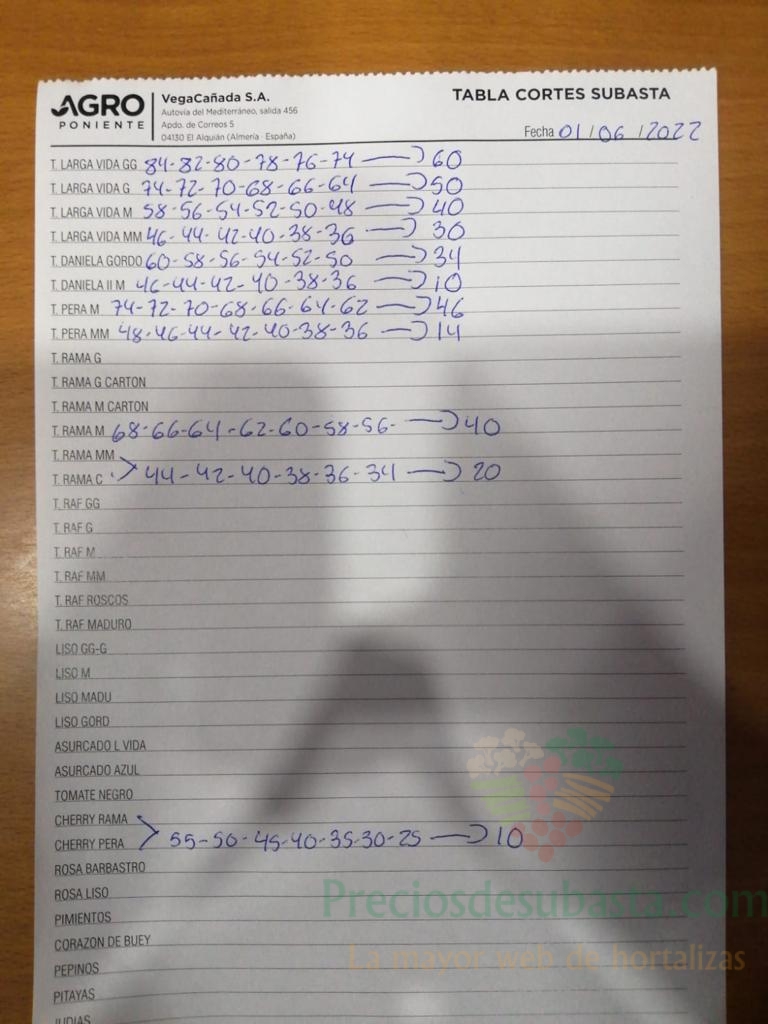 AGRO PONIENTE
VegaCañada S.A.
Autovía del Mediterráneo, salida 456
Apdo. de Correos 5
04130 El Alquián (Almería - España)
TABLA CORTES SUBASTA
Fecha 01/06/2022
T. LARGA VIDA GG 84-82-80-78-76-74 → 60
T. LARGA VIDA G 74-72-70-68-66-64 → 50
T. LARGA VIDA M 58-56-54-52-50-48 → 40
T. LARGA VIDA MM 46-44-42-40-38-36 → 30
T. DANIELA GORDO 60-58-56-54-52-50 → 34
T. DANIELA II M 46-44-42-40-38-36 → 10
T. PERA M 74-72-70-68-66-64-62 → 46
T. PERA MM 48-46-44-42-40-38-36 → 14
T. RAMA G
T. RAMA G CARTON
T. RAMA M CARTON
T. RAMA M 68-66-64-62-60-58-56- → 40
T. RAMA MM
T. RAMA C > 44-42-40-38-36-34 → 20
T. RAF GG
T. RAF G
T. RAF M
T. RAF MM
T. RAF ROSCOS
T. RAF MADURO
LISO GG-G
LISO M
LISO MADU
LISO GORD
ASURCADO L VIDA
ASURCADO AZUL
TOMATE NEGRO
CHERRY RAMA
CHERRY PERA > 55-50-45-40-35-30-25 → 10
ROSA BARBASTRO
ROSA LISO
PIMIENTOS
CORAZON DE BUEY
PEPINOS
PITAYAS
JUDIAS
Preciosdesubasta.com
La mayor web de hortalizas